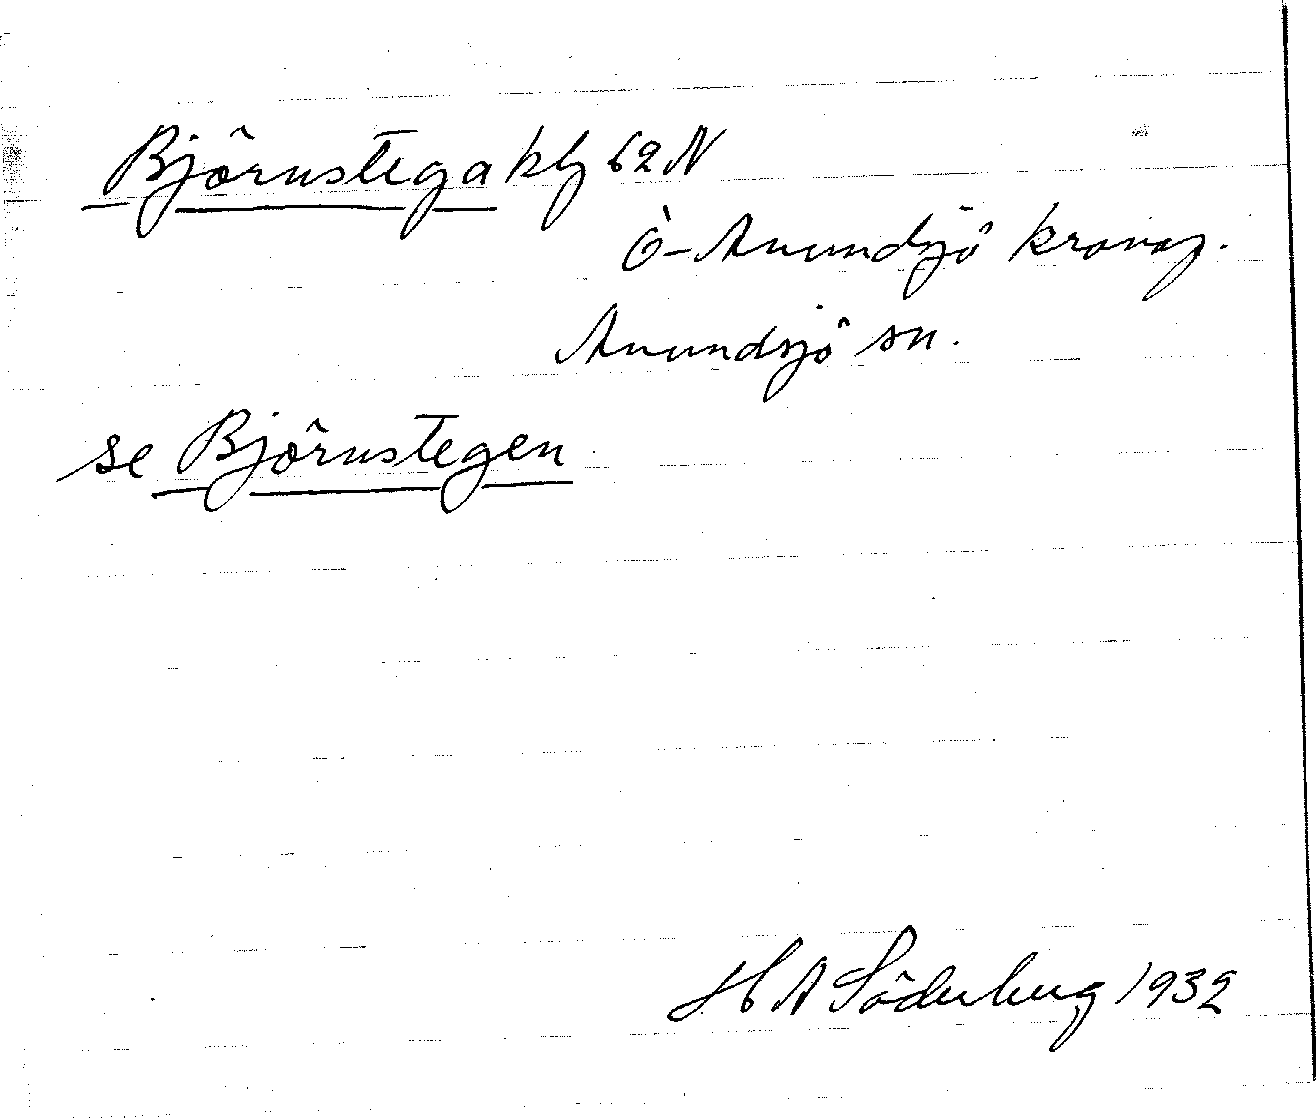 Björnstega klg 62 N
Ö-Anundsjö kronap.
Anundsjö sn.
se Björnstegen
H A Söderberg 1932